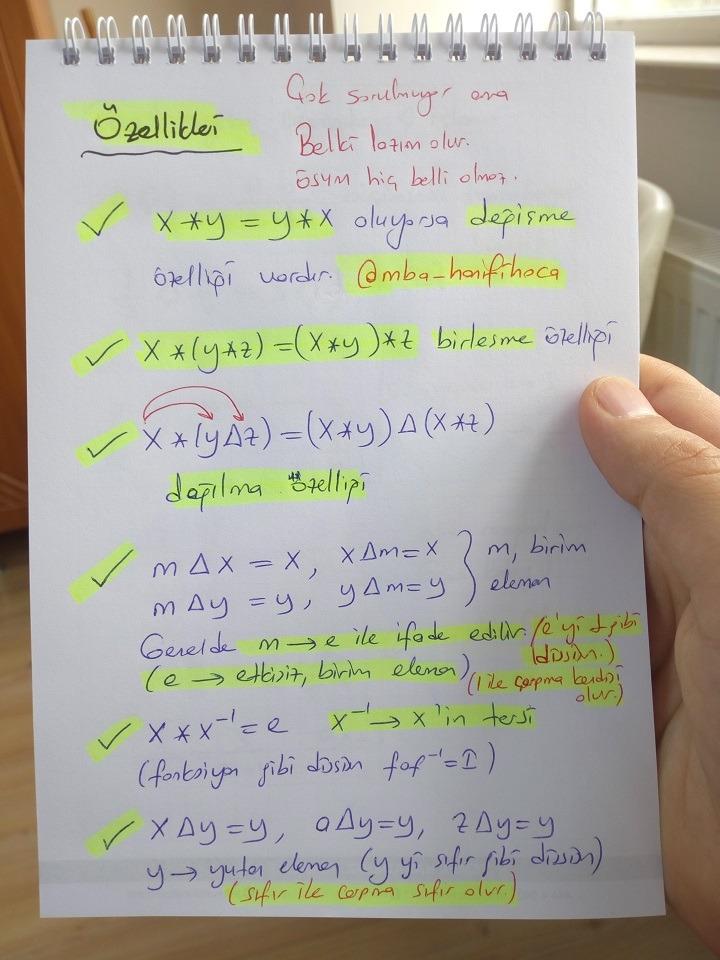 Özellikleri
Çok sorulmuyor ama
Belki lazım olur.
ÖSYM hiç belli olmaz.
x * y = y * x oluyorsa değişme
özelliği vardır. @mba_hanifihoca
x * (y * z) = (x * y) * z birleşme özelliği
x * (y Δ z) = (x * y) Δ (x * z)
dağılma özelliği
m Δ x = x, x Δ m = x } m, birim
m Δ y = y, y Δ m = y } eleman
Genelde m → e ile ifade edilir. (e'yi 1 gibi
düşün.)
(e → etkisiz, birim eleman) (1 ile çarpma kendisi
olur.)
x * x⁻¹ = e x⁻¹ → x'in tersi
(fonksiyon gibi düşün fof⁻¹ = I)
x Δ y = y, a Δ y = y, z Δ y = y
y → yutan eleman (y yi sıfır gibi düşün)
(sıfır ile çarpma sıfır olur.)